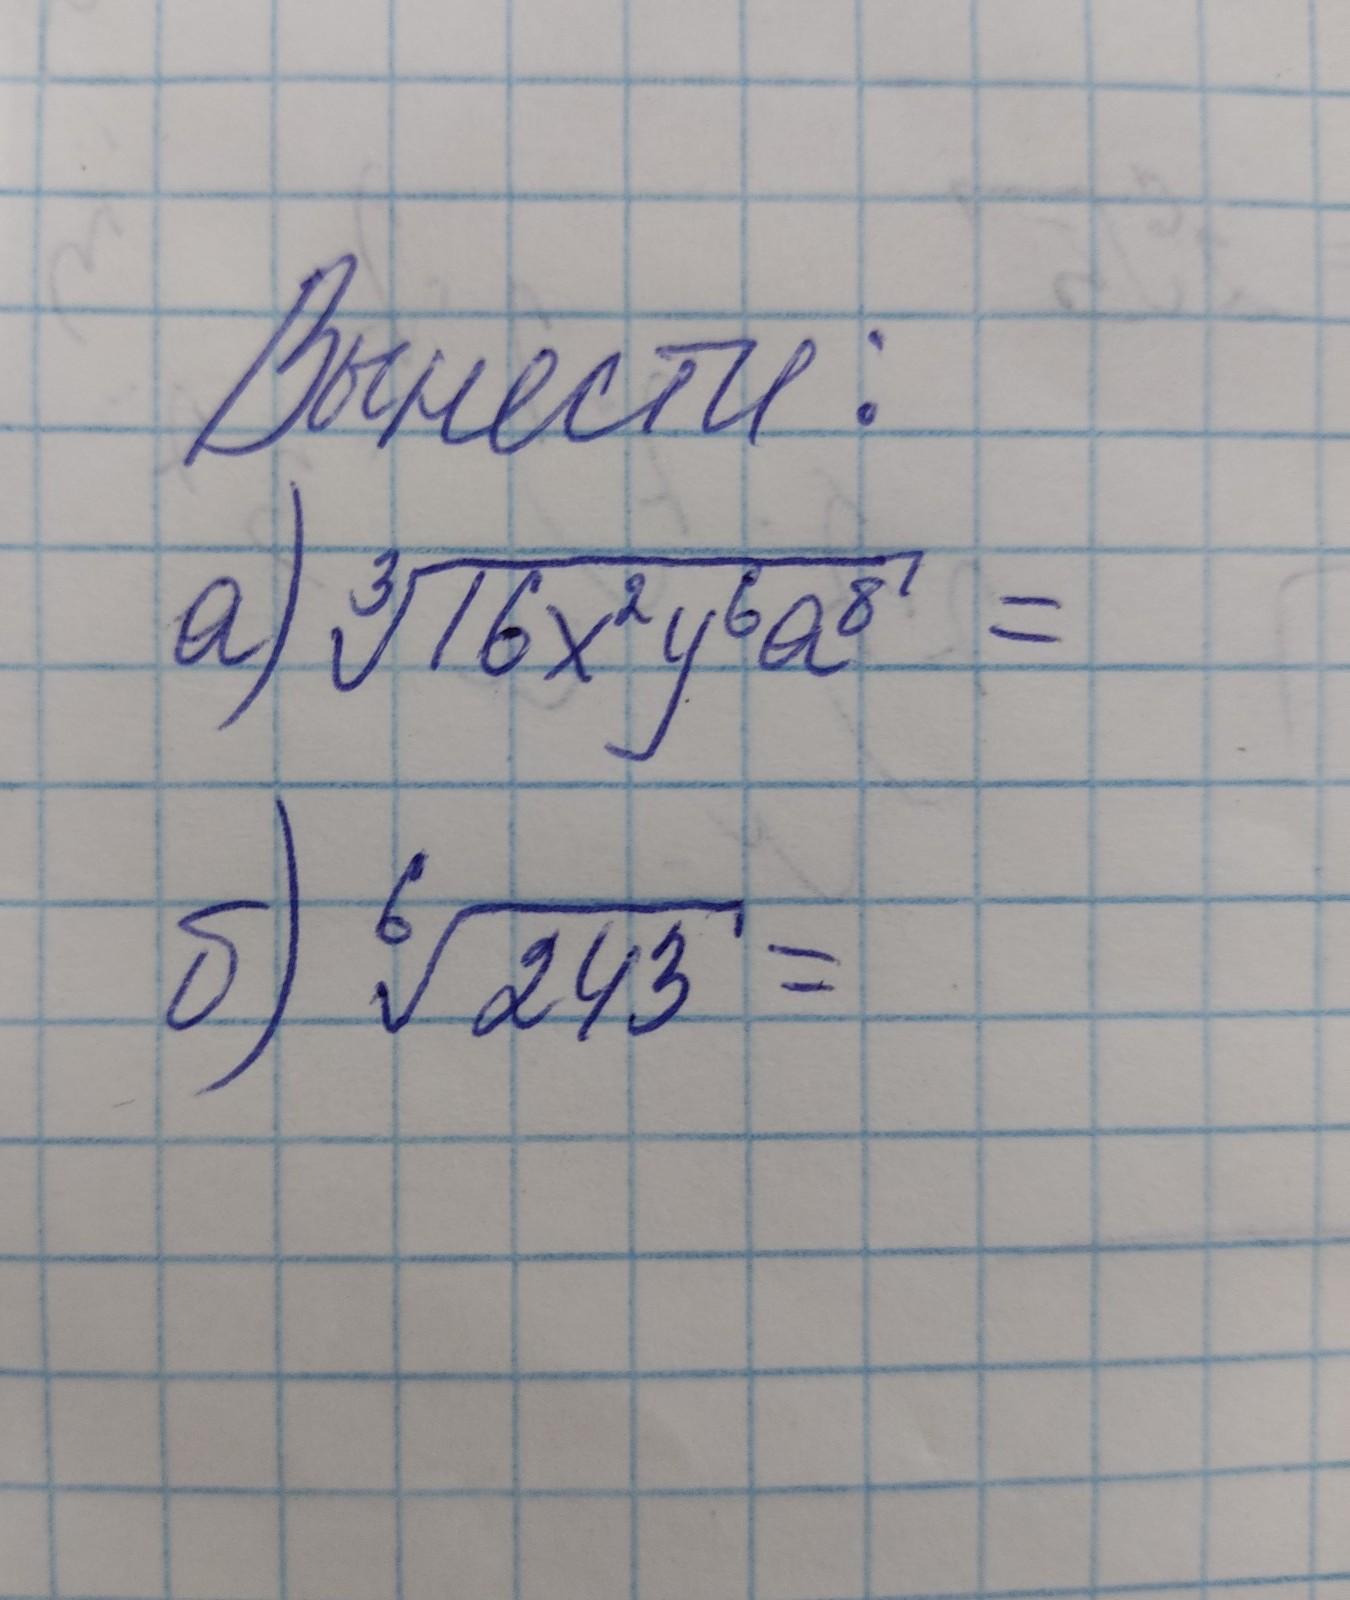 Вынести:
а) ∛16x²y⁶a⁸ =
б) ⁶√243 =